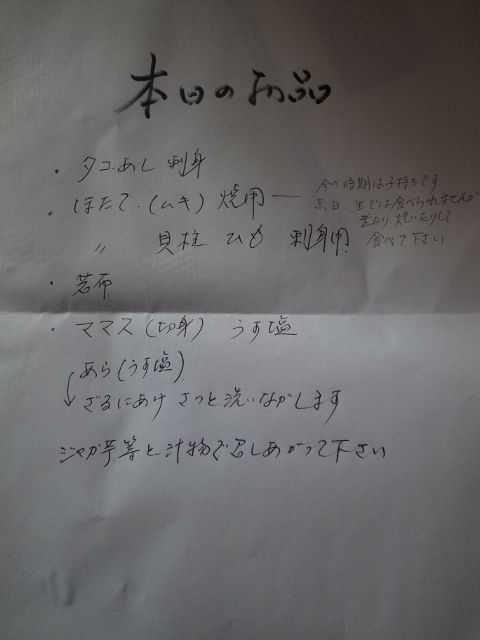 本日の商品
・タコあし 刺身
・ほたて (ムキ) 焼用 ―
今の時期は子持ちです
生では食べられませんが
煮たり 焼いたりして
食べて下さい
〃 貝柱 ひも 刺身用
・若布
・ママス (切身) うす塩
あら (うす塩)
ざるにあけ さっと洗いながします
ジャガ芋等と汁物で召しあがって下さい